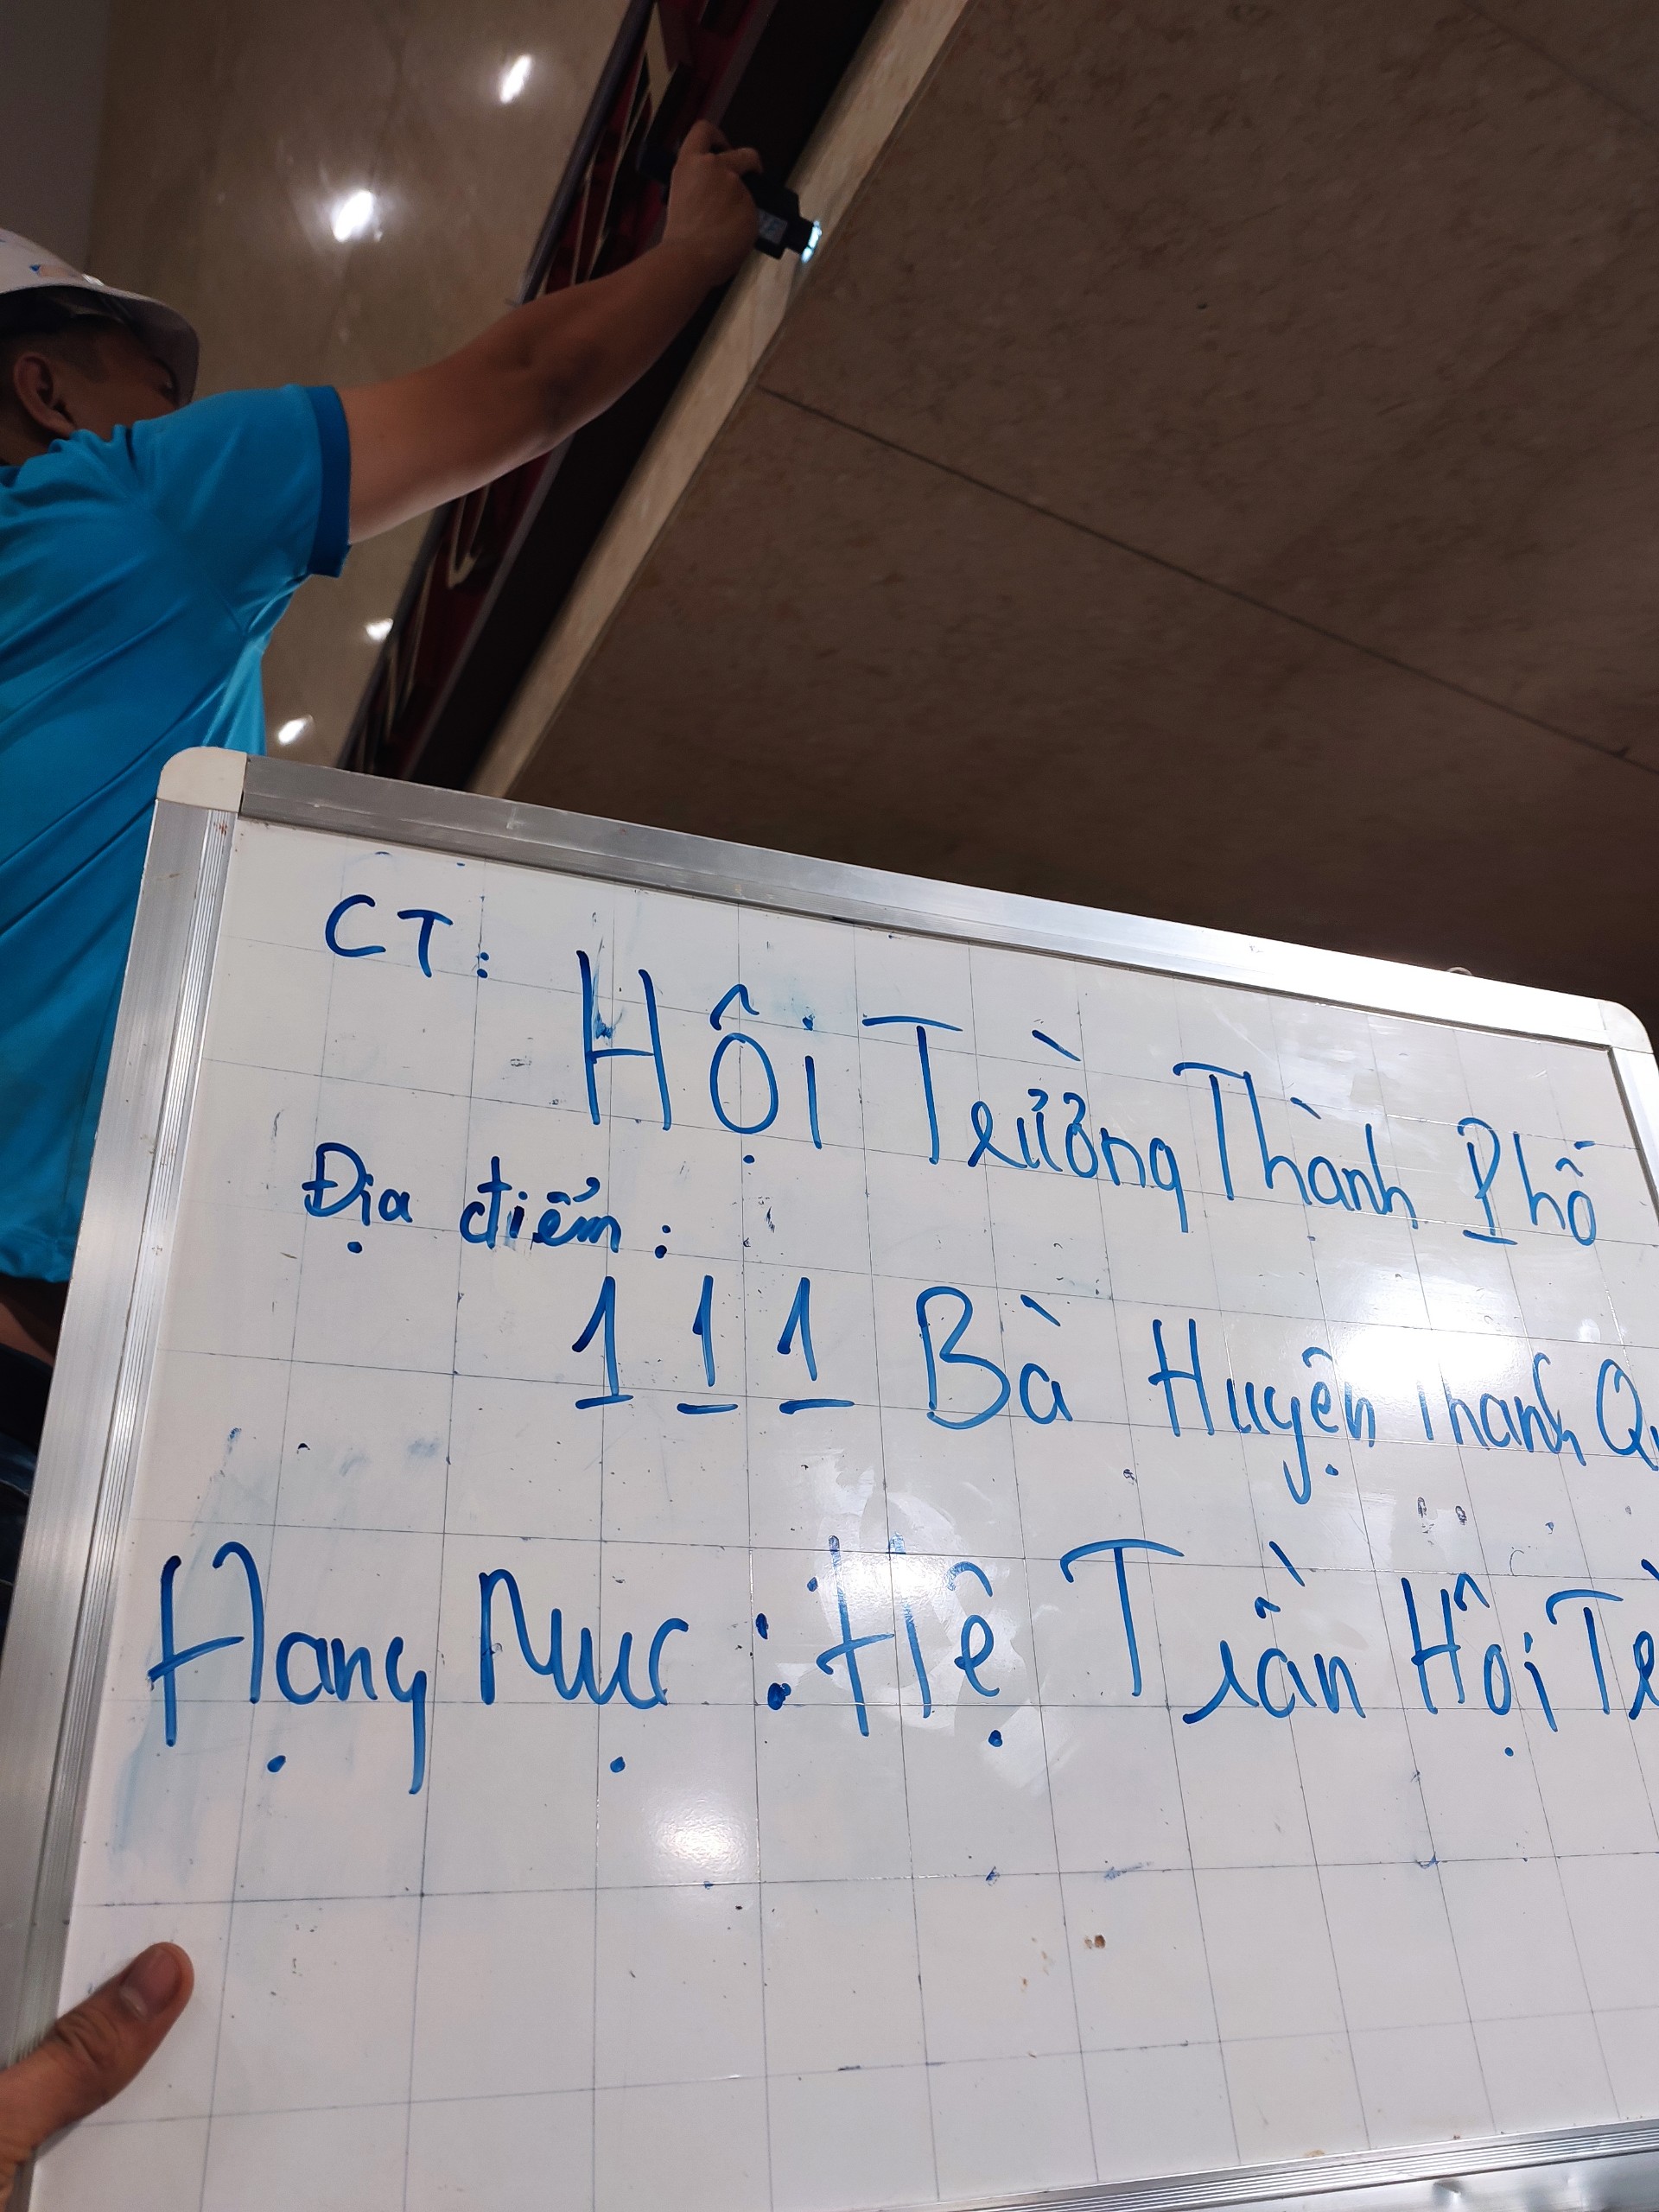 CT:
Hội Trường Thành Phố
Địa điểm:
111 Bà Huyện Thanh Qu
Hạng Mục: Hệ Trần Hội Tr